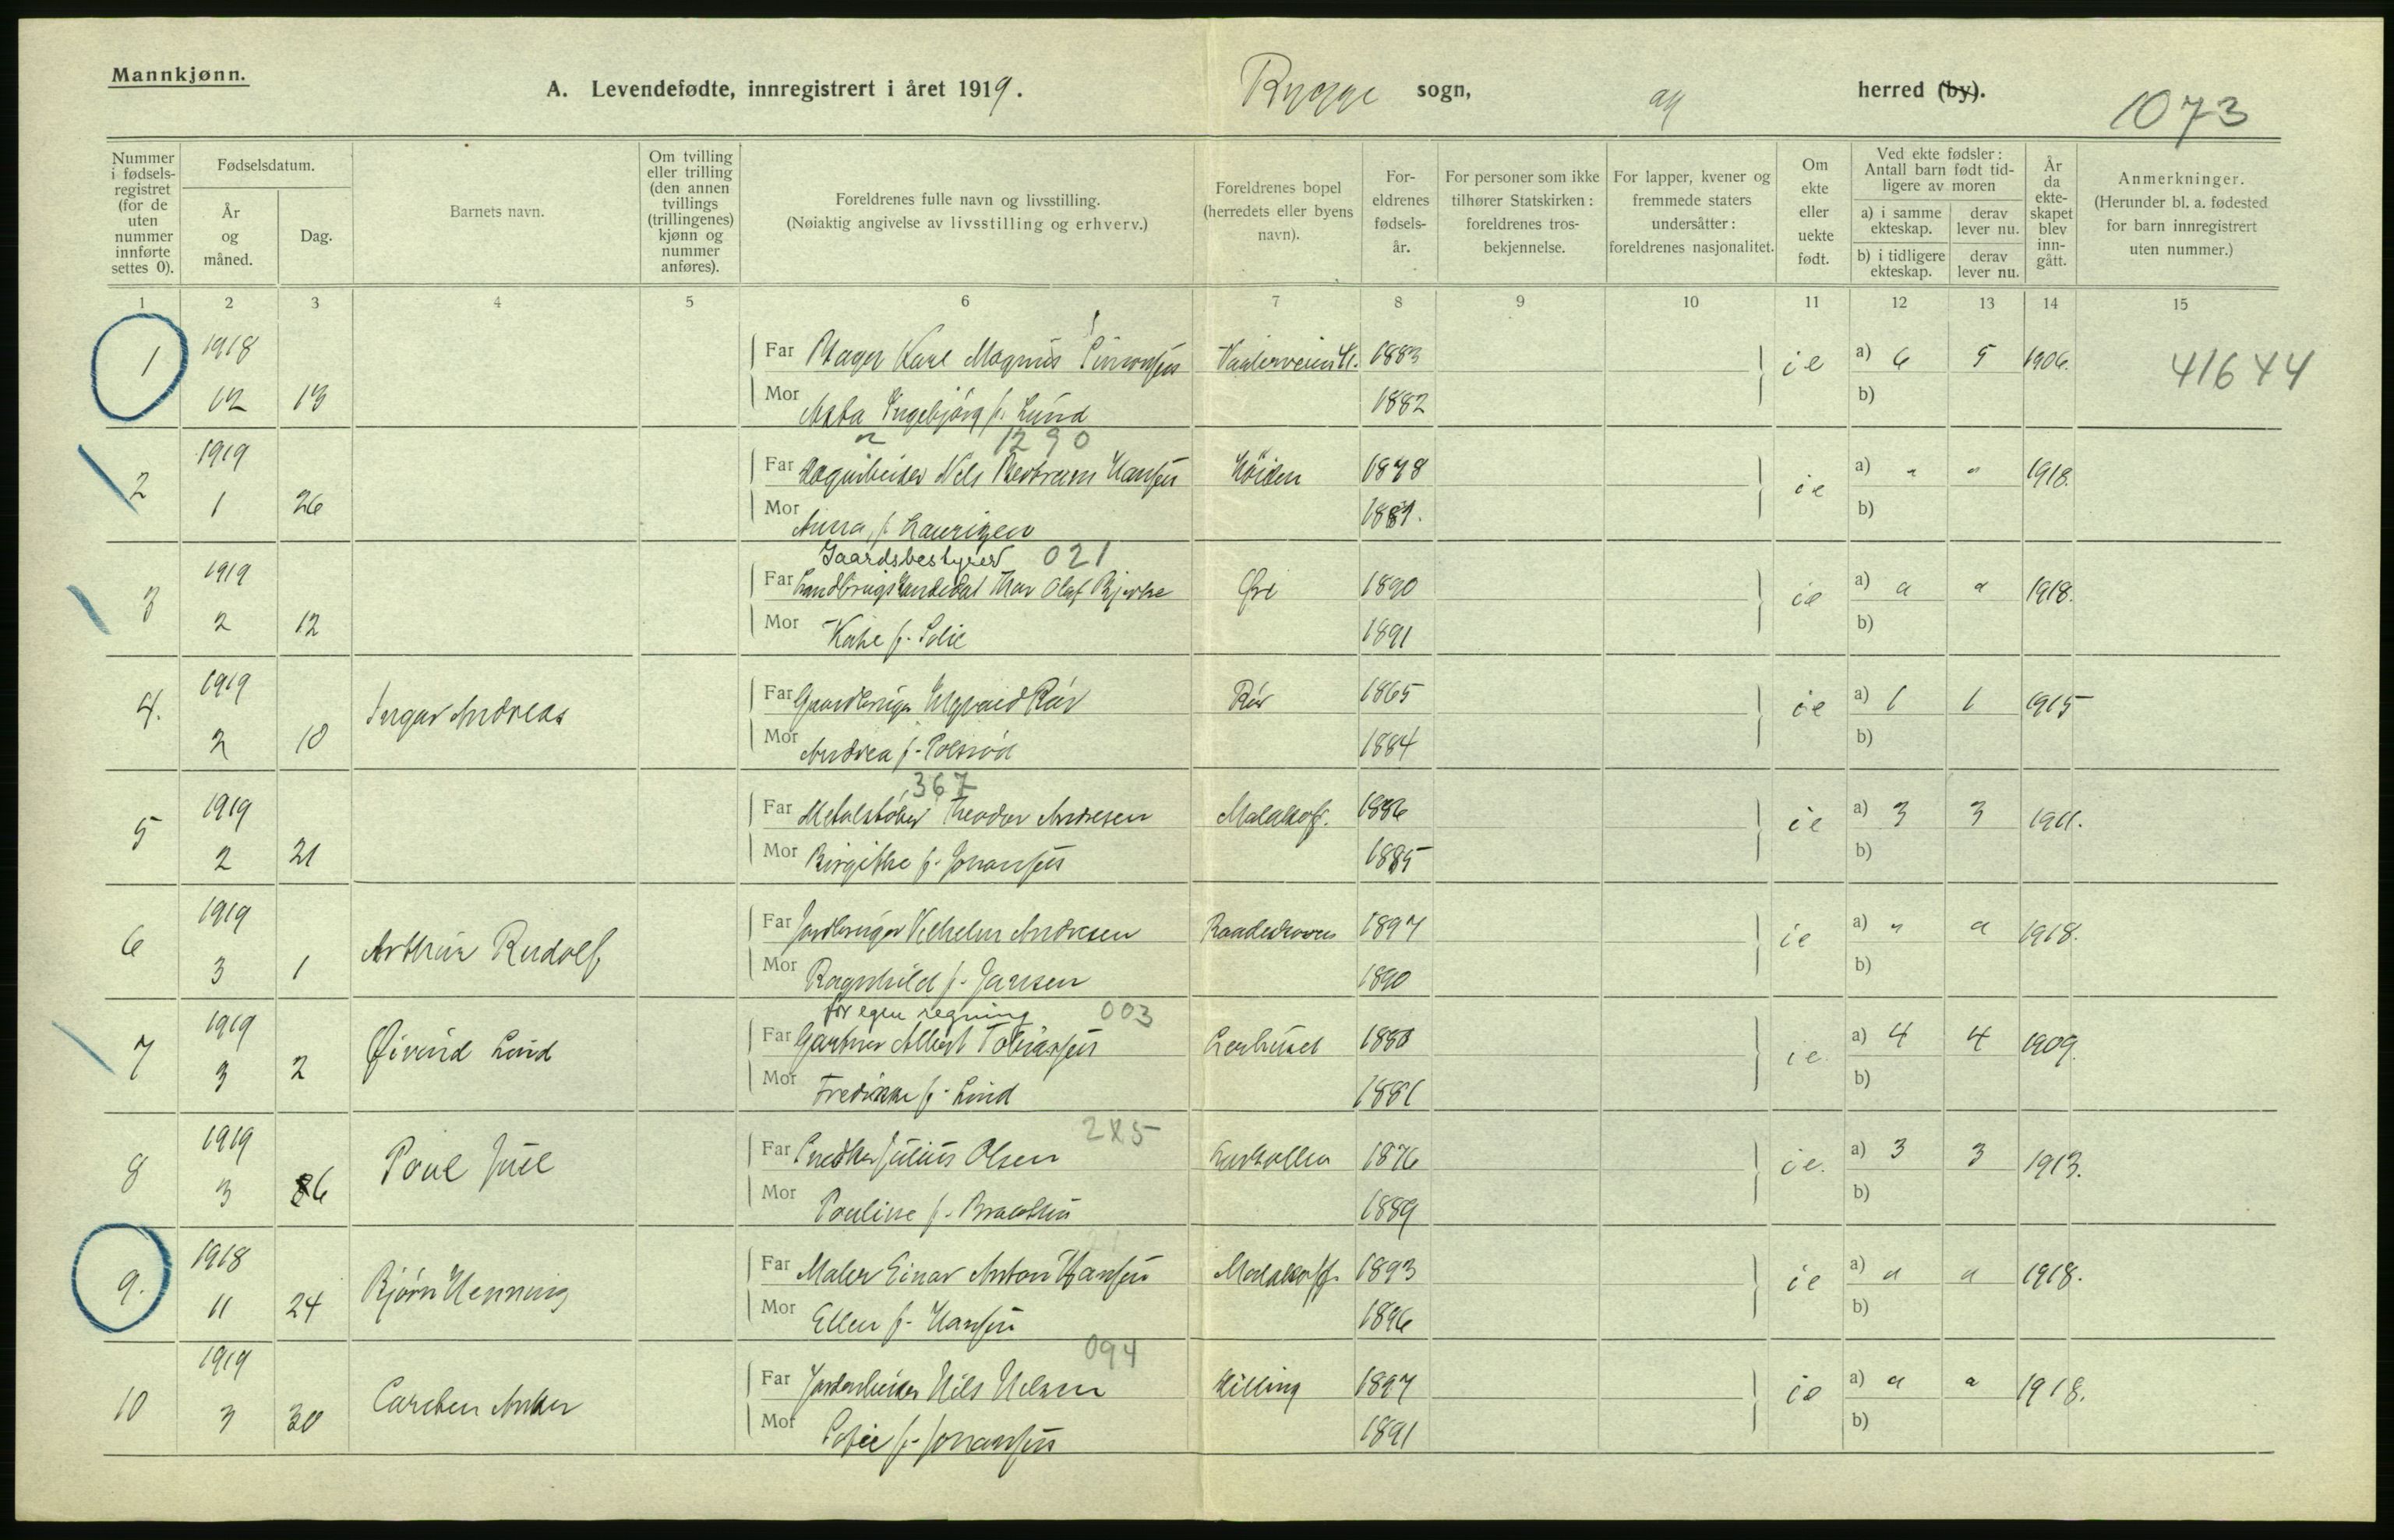 Mannkjønn.
A. Levendefødte, innregistrert i året 1919. Rygge sogn, herred (by).
1073
Nummer i fødselsregistret (for de uten nummer innførte settes 0).
Fødselsdatum.
År og måned.
Dag.
Barnets navn.
Om tvilling eller trilling (den annen tvillings (trillingenes) kjønn og nummer anføres).
Foreldrenes fulle navn og livsstilling.
(Nøiaktig angivelse av livsstilling og erhverv.)
Foreldrenes bopel (herredets eller byens navn).
Foreldrenes fødselsår.
For personer som ikke tilhører Statskirken: foreldrenes trosbekjennelse.
For lapper, kvener og fremmede staters undersåtter: foreldrenes nasjonalitet.
Om ekte eller uekte født.
Ved ekte fødsler: Antall barn født tidligere av moren
a) i samme ekteskap. derav lever nu.
b) i tidligere ekteskap. derav lever nu.
År da ekteskapet blev inngått.
Anmerkninger.
(Herunder bl. a. fødested for barn innregistrert uten nummer.)
1 2 3 4 5 6 7 8 9 10 11 12 13 14 15
1 1918 Far Karl Magnus Simonsen 1883 ie a) 6 5 1906. 41644
12 13 Mor Asta Ingebjörg f. Lund 1882 b)
1290
2 1919 Far Nels Hansen 1878 ie a) " " 1918.
1 26 Mor Anna, f. Lauritzen b)
Gaardsbestyrer 021
3 1919 Far Landbrugskandidat Thor Olaf Bjerke 1890 ie a) " " 1918.
2 12 Mor f. Solie 1891 b)
4. 1919 Ingar Andreas Far Gaardbruger Rör Rör 1865 ie a) 1 1 1915
2 10 Mor Andrea f. 1884 b)
367
5 1919 Far Metalstøber Theodor Andresen Malakoff. 1886 ie a) 3 3 1911.
2 21 Mor Birgitthe f. Johansen 1885 b)
6 1919 Arthur Rudolf Far Jordbruger Vilhelm Andresen 1897 ie a) " " 1918.
3 1 Mor Ragnhild f. Jansen 1890 b)
for egen regning 003
7 1919 Øivind Lind Far Gartner Albert Tobiassen 1880 ie. a) 4 4 1909.
3 2 Mor Fredrikke f. Lind 1881 b)
8 1919 Poul Juel Far Snedker Julius Olsen 1876 ie. a) 3 3 1913.
3 6 Mor Pauline f. 1889 b)
9. 1918 Bjørn Henning Far Maler Einar Anton Hansen Malakoff. 1893 ie a) " " 1918.
11 24 Mor Ellen f. Hansen 1896 b)
094
10 1919 Carsten Anker Far Jordarbeider Nils Nilsen Killing 1897 ie a) " " 1918.
3 30 Mor Sofie f. Johansen 1891 b)